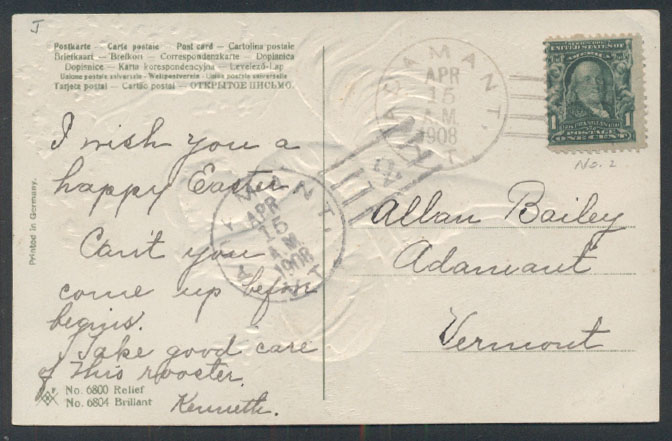 J
Postkarte — Carte postale — Post card — Cartolina postale
Brefkaart — Brefkort — Correspondenzkarte — Dopisnica
Dopisnice — Karta korespondencyjna — Levelező-Lap
Unione postale universale — Weltpostverein — Union postale universelle
Tarjeta postal — Cartão postal — ОТКРЫТОЕ ПИСЬМО.
I wish you a
happy Easter
Can't you
come up before
begins.
Take good care
of this rooster.
Kenneth.
Printed in Germany.
No. 6800 Relief
No. 6804 Brillant
ADAMANT,
APR
15
A.M.
1908
VT.
ADAMANT,
APR
15
A.M.
1908
VT.
UNITED STATES OF
AMERICA
1 1
POSTAGE
ONE CENT
No. 2
Allan Bailey
Adamant
Vermont